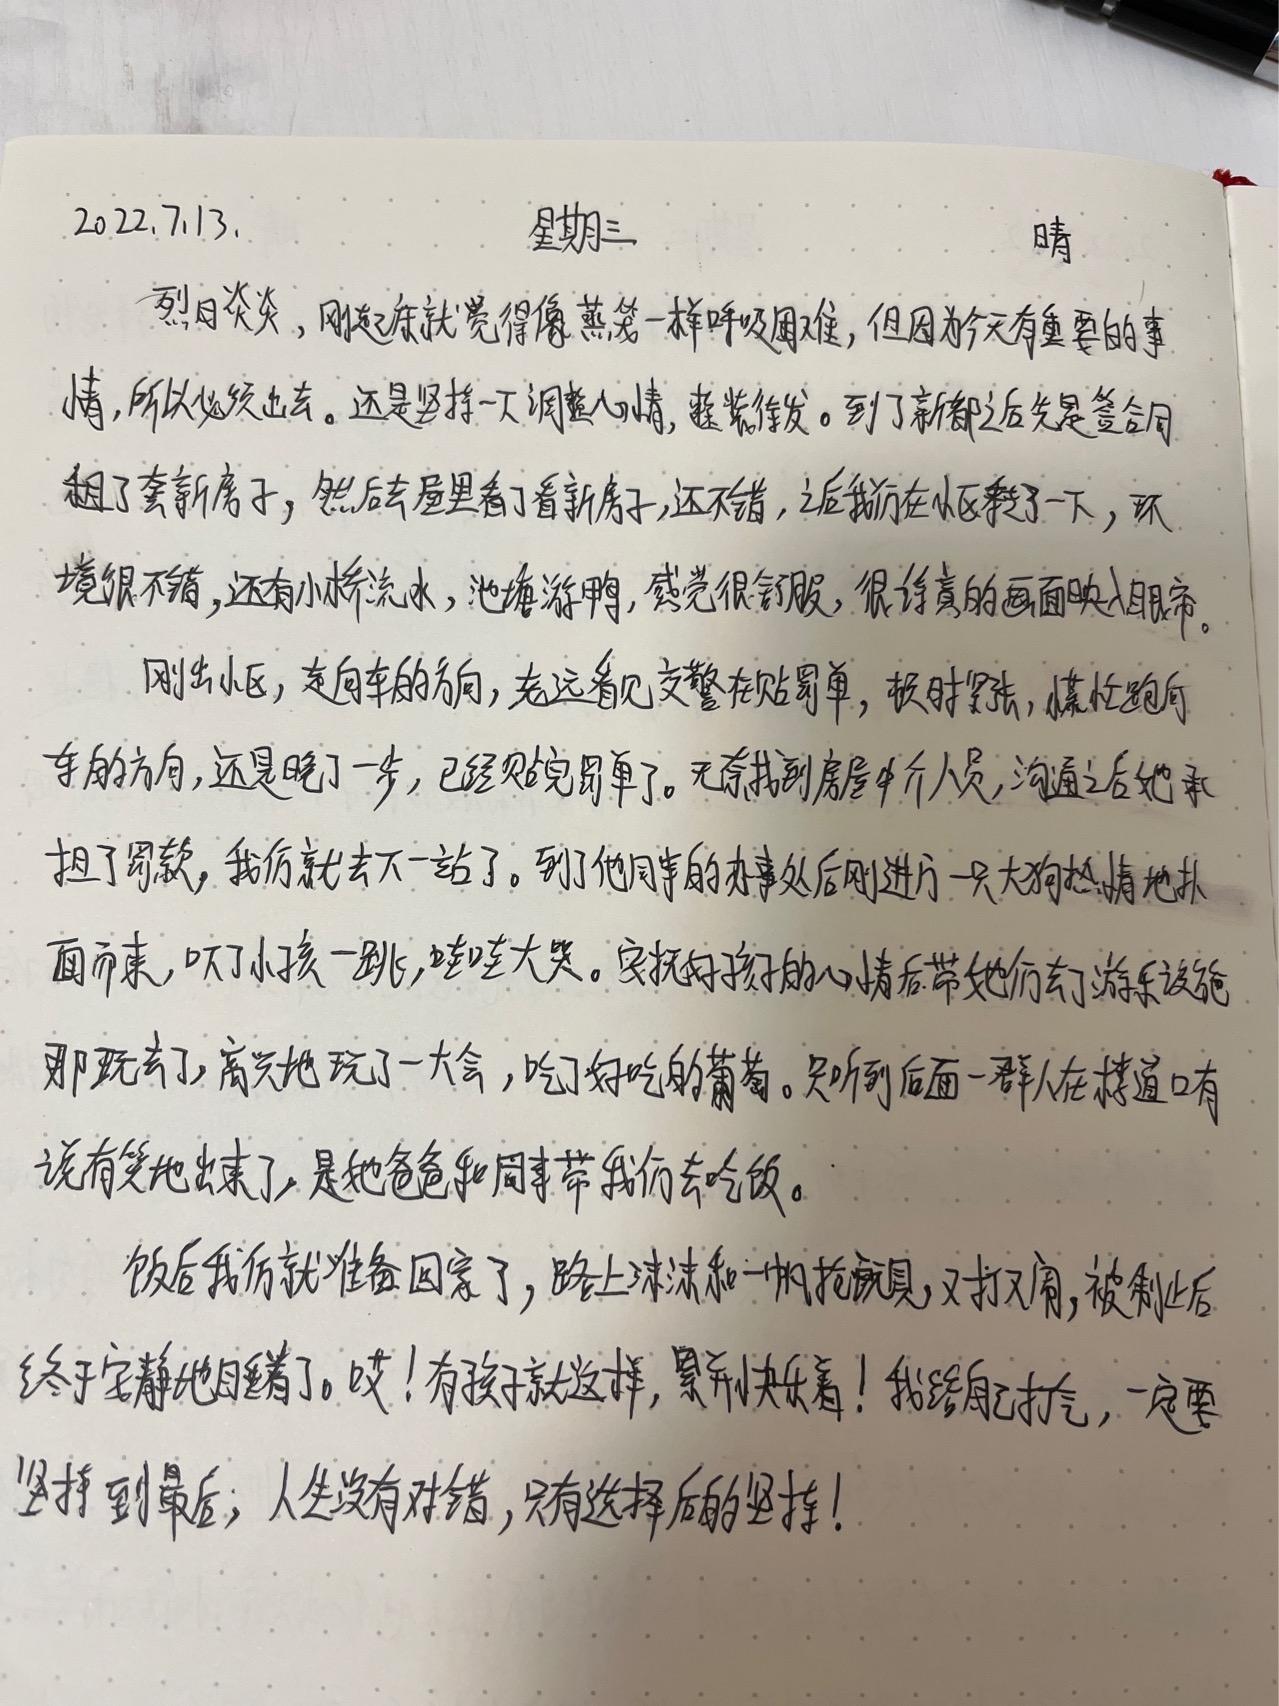 2022.7.13. 星期三 晴
烈日炎炎，刚起床就觉得像蒸笼一样呼吸困难，但因为今天有重要的事
情，所以必须出去。还是坚持一下调整心情，整装待发。到了新都之后先是签合同
租了套新房子，然后去屋里看了看新房子，还不错，之后我们在小区转了一下，环
境很不错，还有小桥流水，池塘游鸭，感觉很舒服，很诗意的画面映入眼帘。
刚出小区，走向车的方向，老远看见交警在贴罚单，极时紧张，慌忙跑向
车的方向，还是晚了一步，已经贴完罚单了。无奈找到房屋中介人员，沟通之后她承
担了罚款，我们就去下一站了。到了他同事的办事处后刚进门一只大狗热情地扑
面而来，吓了小孩一跳，哇哇大哭。安抚好孩子的心情后带她们去了游乐设施
那玩去了，高兴地玩了一大会，吃了好吃的葡萄。只听到后面一群人在楼道口有
说有笑地出来了，是她爸爸和同事带我们去吃饭。
饭后我们就准备回家了，路上沫沫和一帆抢玩具，又打又闹，被制止后
终于安静地睡着了。哎！有孩子就这样，累并快乐着！我给自己打气，一定要
坚持到最后，人生没有对错，只有选择后的坚持！